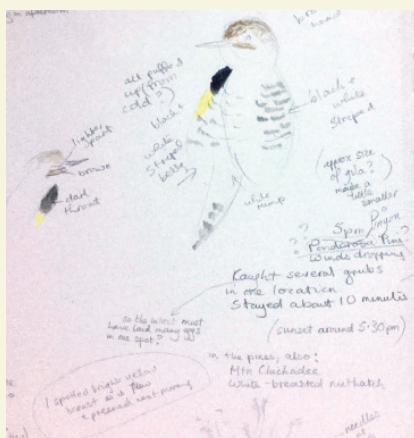 all puffed
up (from
cold?)
black +
white
striped
belly
lighter
brown
dark
throat
black +
white
striped
white rump
(approx size
of gila?
maybe a
little
smaller
5pm Pinyon
? Ponderosa Pine?
Winds dropping
Kaught several grubs
in one location
Stayed about 10 minutes
(sunset around 5:30pm)
so the insect must
have laid many eggs
in one spot?
in the pines, also:
Mtn Chickadee
White-breasted nuthatch
I spotted bright yellow
breast as it flew
+ preened next morning
needles